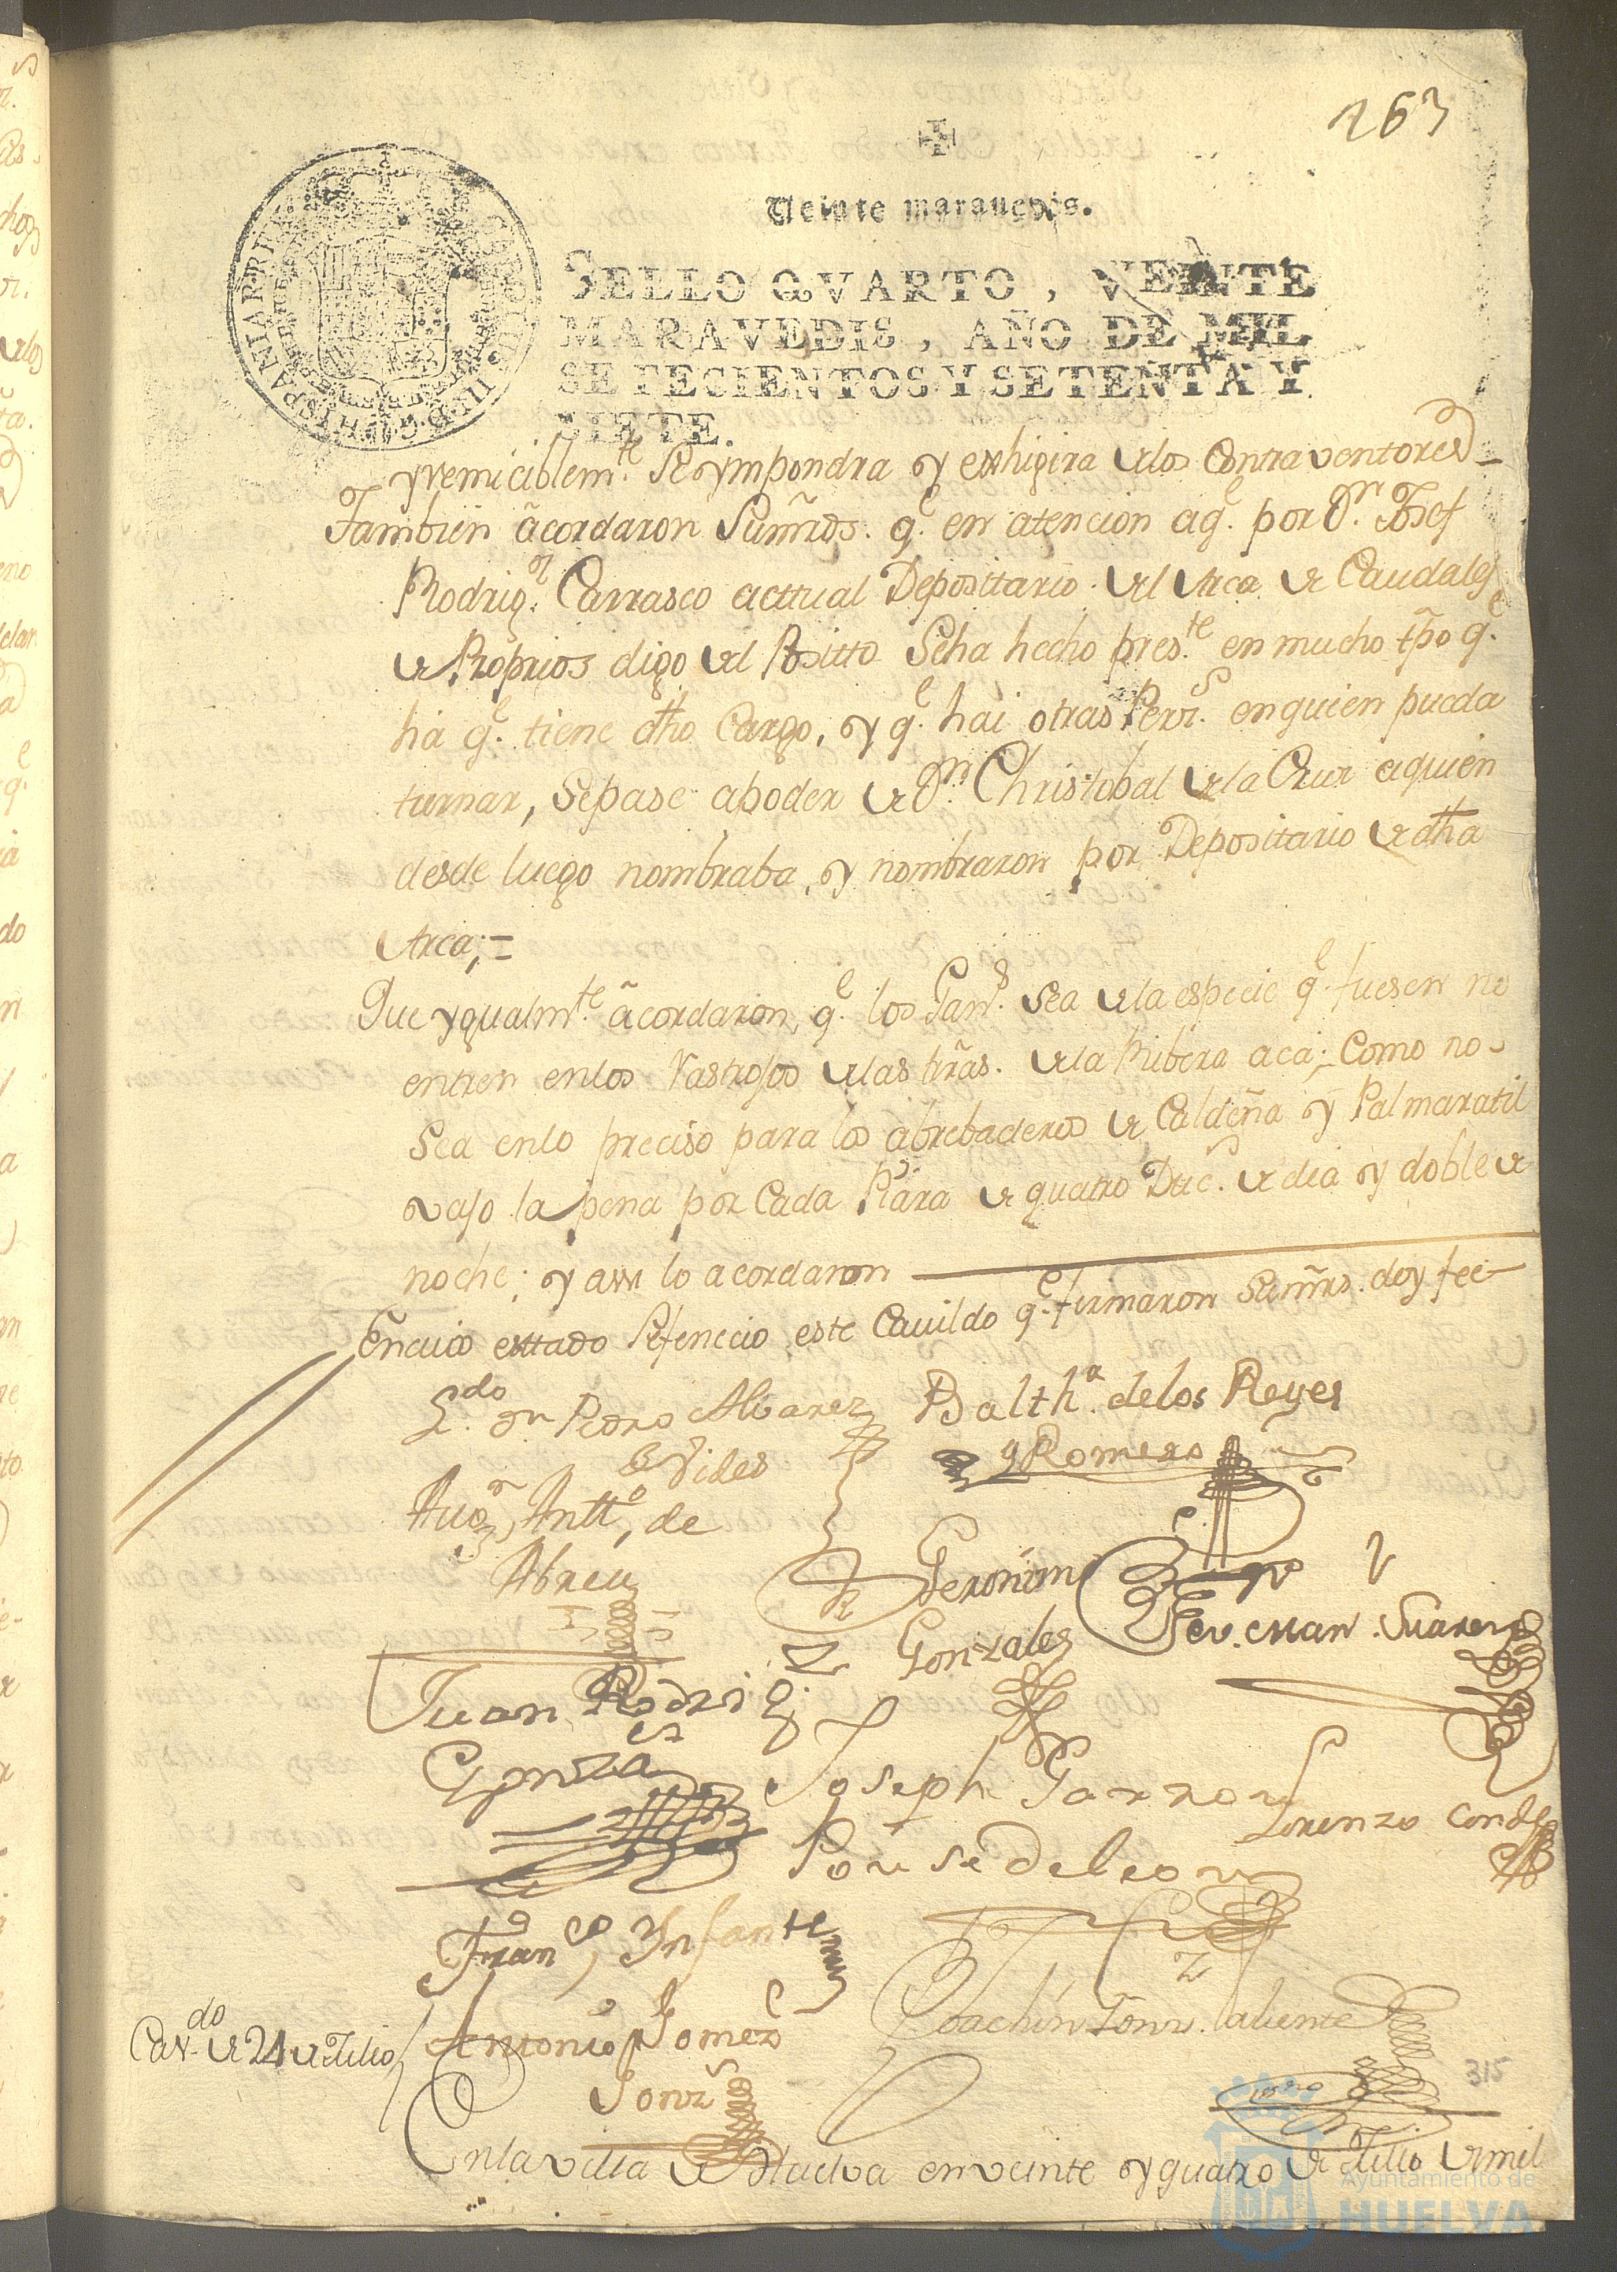 263
Veinte marauedis.
SELLO QVARTO, VEINTE
MARAVEDIS, AÑO DE MIL
SETECIENTOS Y SETENTA Y
SIETE.
HISPANIAR REX
yrremiciblem.te Se ympondra y exhigira a los Contraventores
Tambien acordaron Sum̃rds. q.e en atencion a q.e por Dn. Josef
Rodrig.z Carrasco acttual Depositario del Arca de Caudales
de Proprios digo del Positto Seha hecho pres.te en mucho tp̃o q.e
ha q.e tiene dho Cargo, y q.e hai otras Pers.s en quien pueda
turnar, Sepase apoder de Dn. Christobal de la Cruz aquien
desde luego nombraba, y nombraron por Depositario de dha
Arca;=
Que ygualm.te acordaron, q.e los Gan.s sea de la especie q.e fuesen no
entren enlos Rastrojos de las trãs. de la Ribera aca; Como no
Sea enlo preciso para los abrebaderos de Caldeña y Palmaratil
vajo la pena por Cada Piara de quatro Duc.s de dia y doble de
noche; y assi lo acordaron
En cuio esttado Se fenecio este Cauildo q.e firmaron Sum̃rs. doy fee
L.do Dn Pedro Alvarez
Vides
Balth.a delos Reyes
y Romero
Aug.n Antt.o de
Abreu
Geronimo
Gonzales
Sev. Man. Suarez
Juan Rodrig.
Gonza
Joseph Garzon
Ponse de leon
Lorenzo Conde
Fran.co Infante
Antonio Gomez
Gonz
Joachin Gonz. Valiente
Cav.do de 24 de Julio
315
En la villa de Huelva en veinte y quatro de Julio de mil
Ayuntamiento de
HUELVA